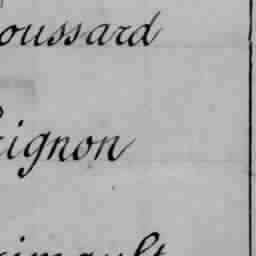 oussard
ignon